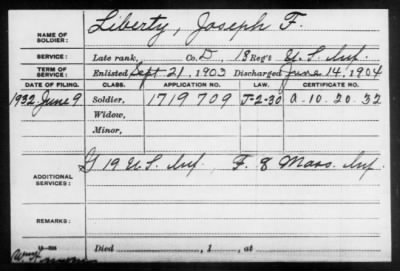 NAME OF SOLDIER: Liberty, Joseph F.
SERVICE: Late rank, Co. D, 18 Reg't U.S. Inf.
TERM OF SERVICE: Enlisted Sept 21, 1903 Discharged June 14, 1904
DATE OF FILING. CLASS. APPLICATION NO. LAW. CERTIFICATE NO.
1932 June 9 Soldier, 1719709 J-2-30 A-10-20-32
Widow,
Minor,
ADDITIONAL SERVICES: G 19 U.S. Inf. F. 8 Mass. Inf.
REMARKS:
Died , 1 , at